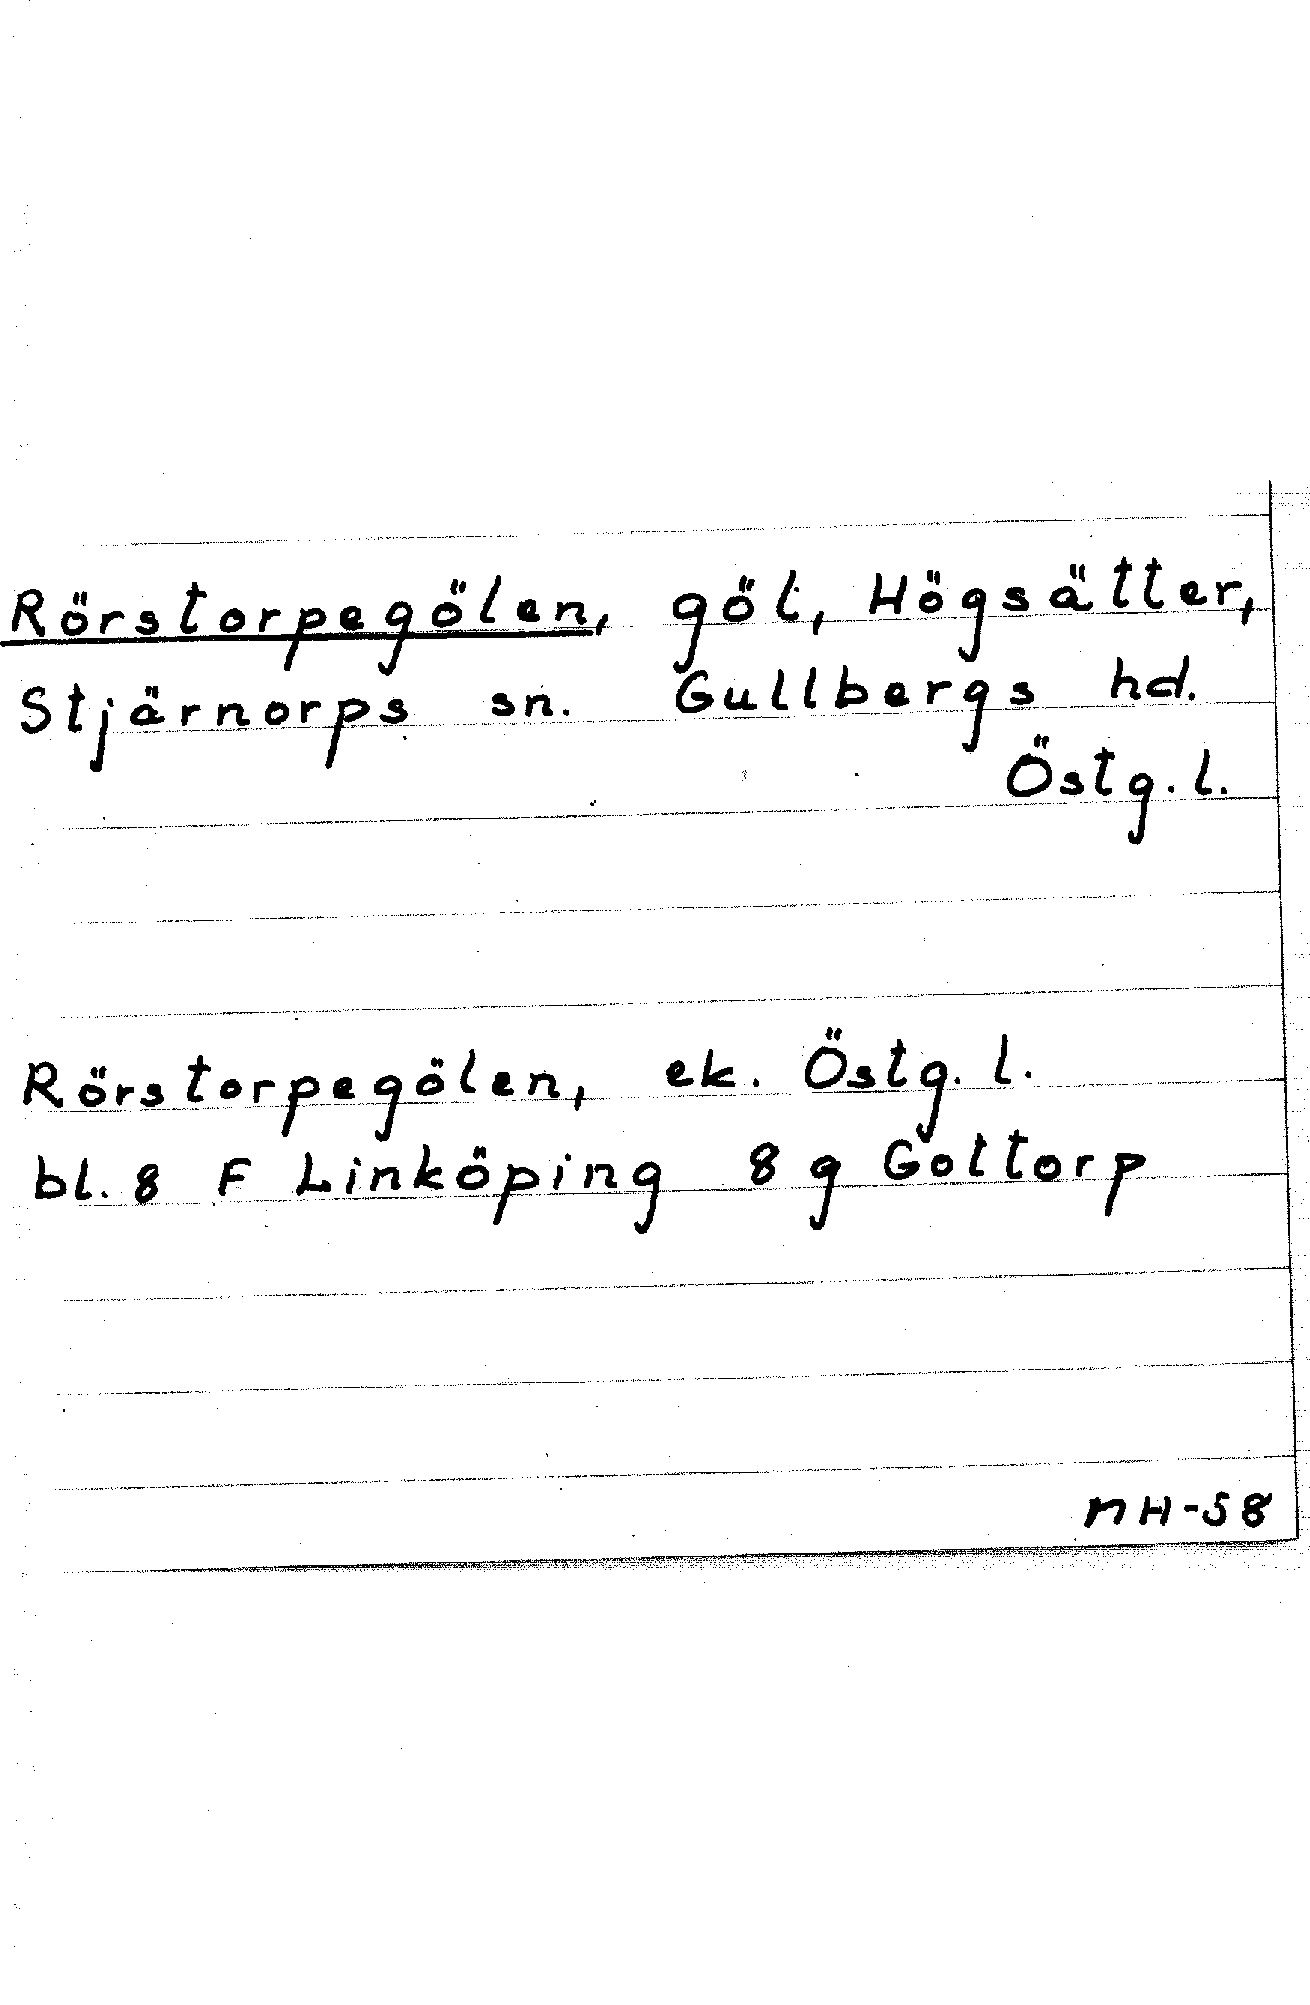 Rörstorpegölen, göl, Högsätter,
Stjärnorps sn. Gullbergs hd.
Östg. l.
Rörstorpegölen, ek. Östg. l.
bl. 8 F Linköping 8 g Gottorp
NH-58